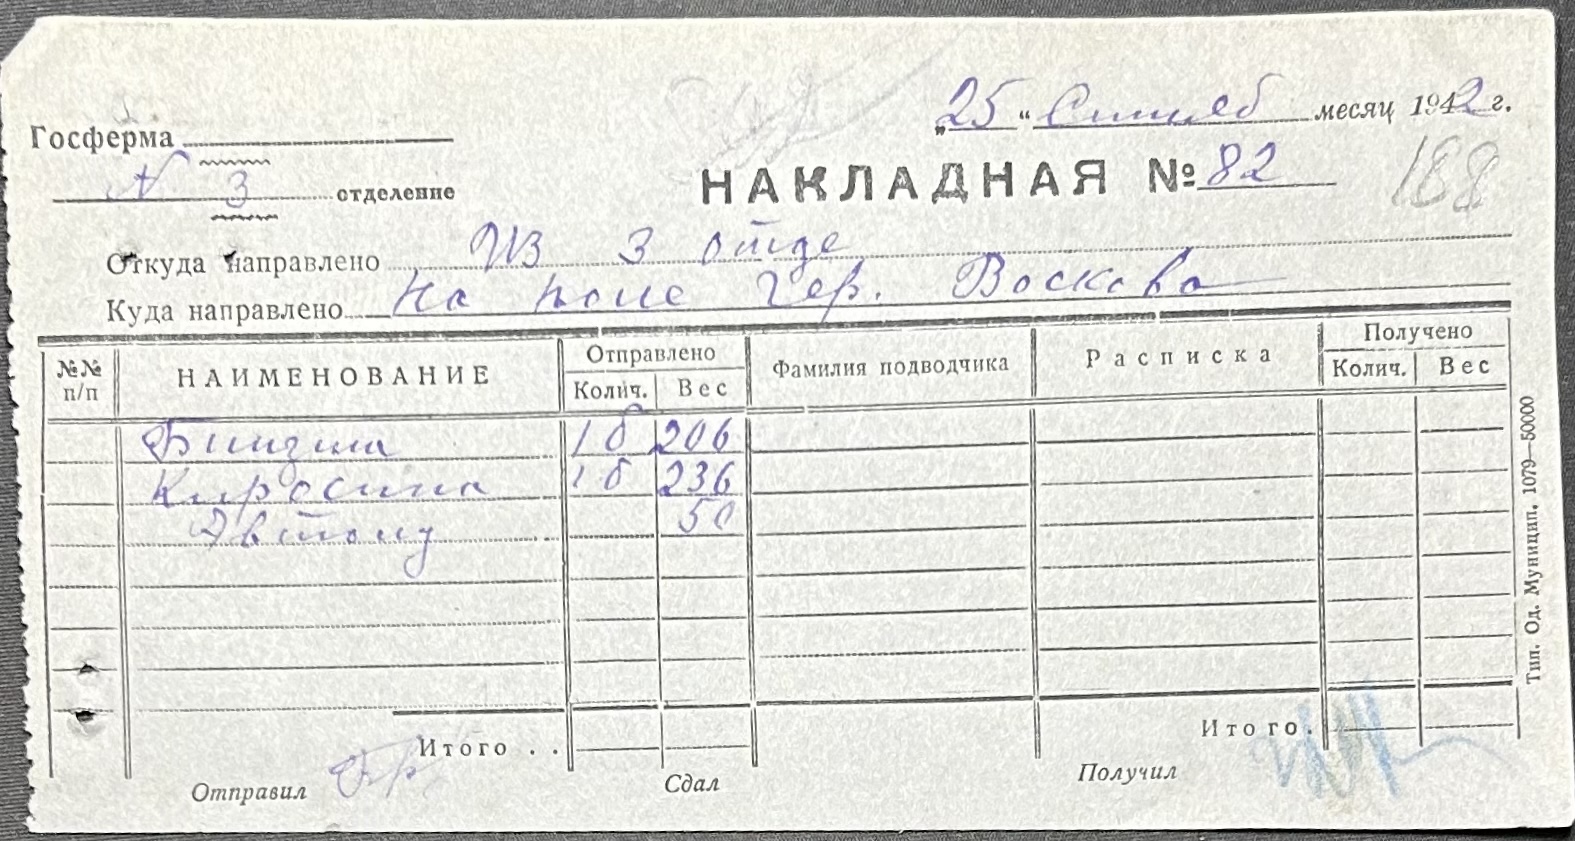 „25“ Синтеб месяц 1942 г.
Госферма
N 3 отделение
НАКЛАДНАЯ № 82
188
Откуда направлено Из 3 отде
Куда направлено На поле Гер. Воскова
№№ п/п НАИМЕНОВАНИЕ Отправлено Колич. Вес Фамилия подводчика Расписка Получено Колич. Вес
Бинзина 1 б 206
Киросина 1 б 236
Автолу 50
Итого . . Итого.
Отправил Сдал Получил
Тип. Од. Муницип. 1079—50000